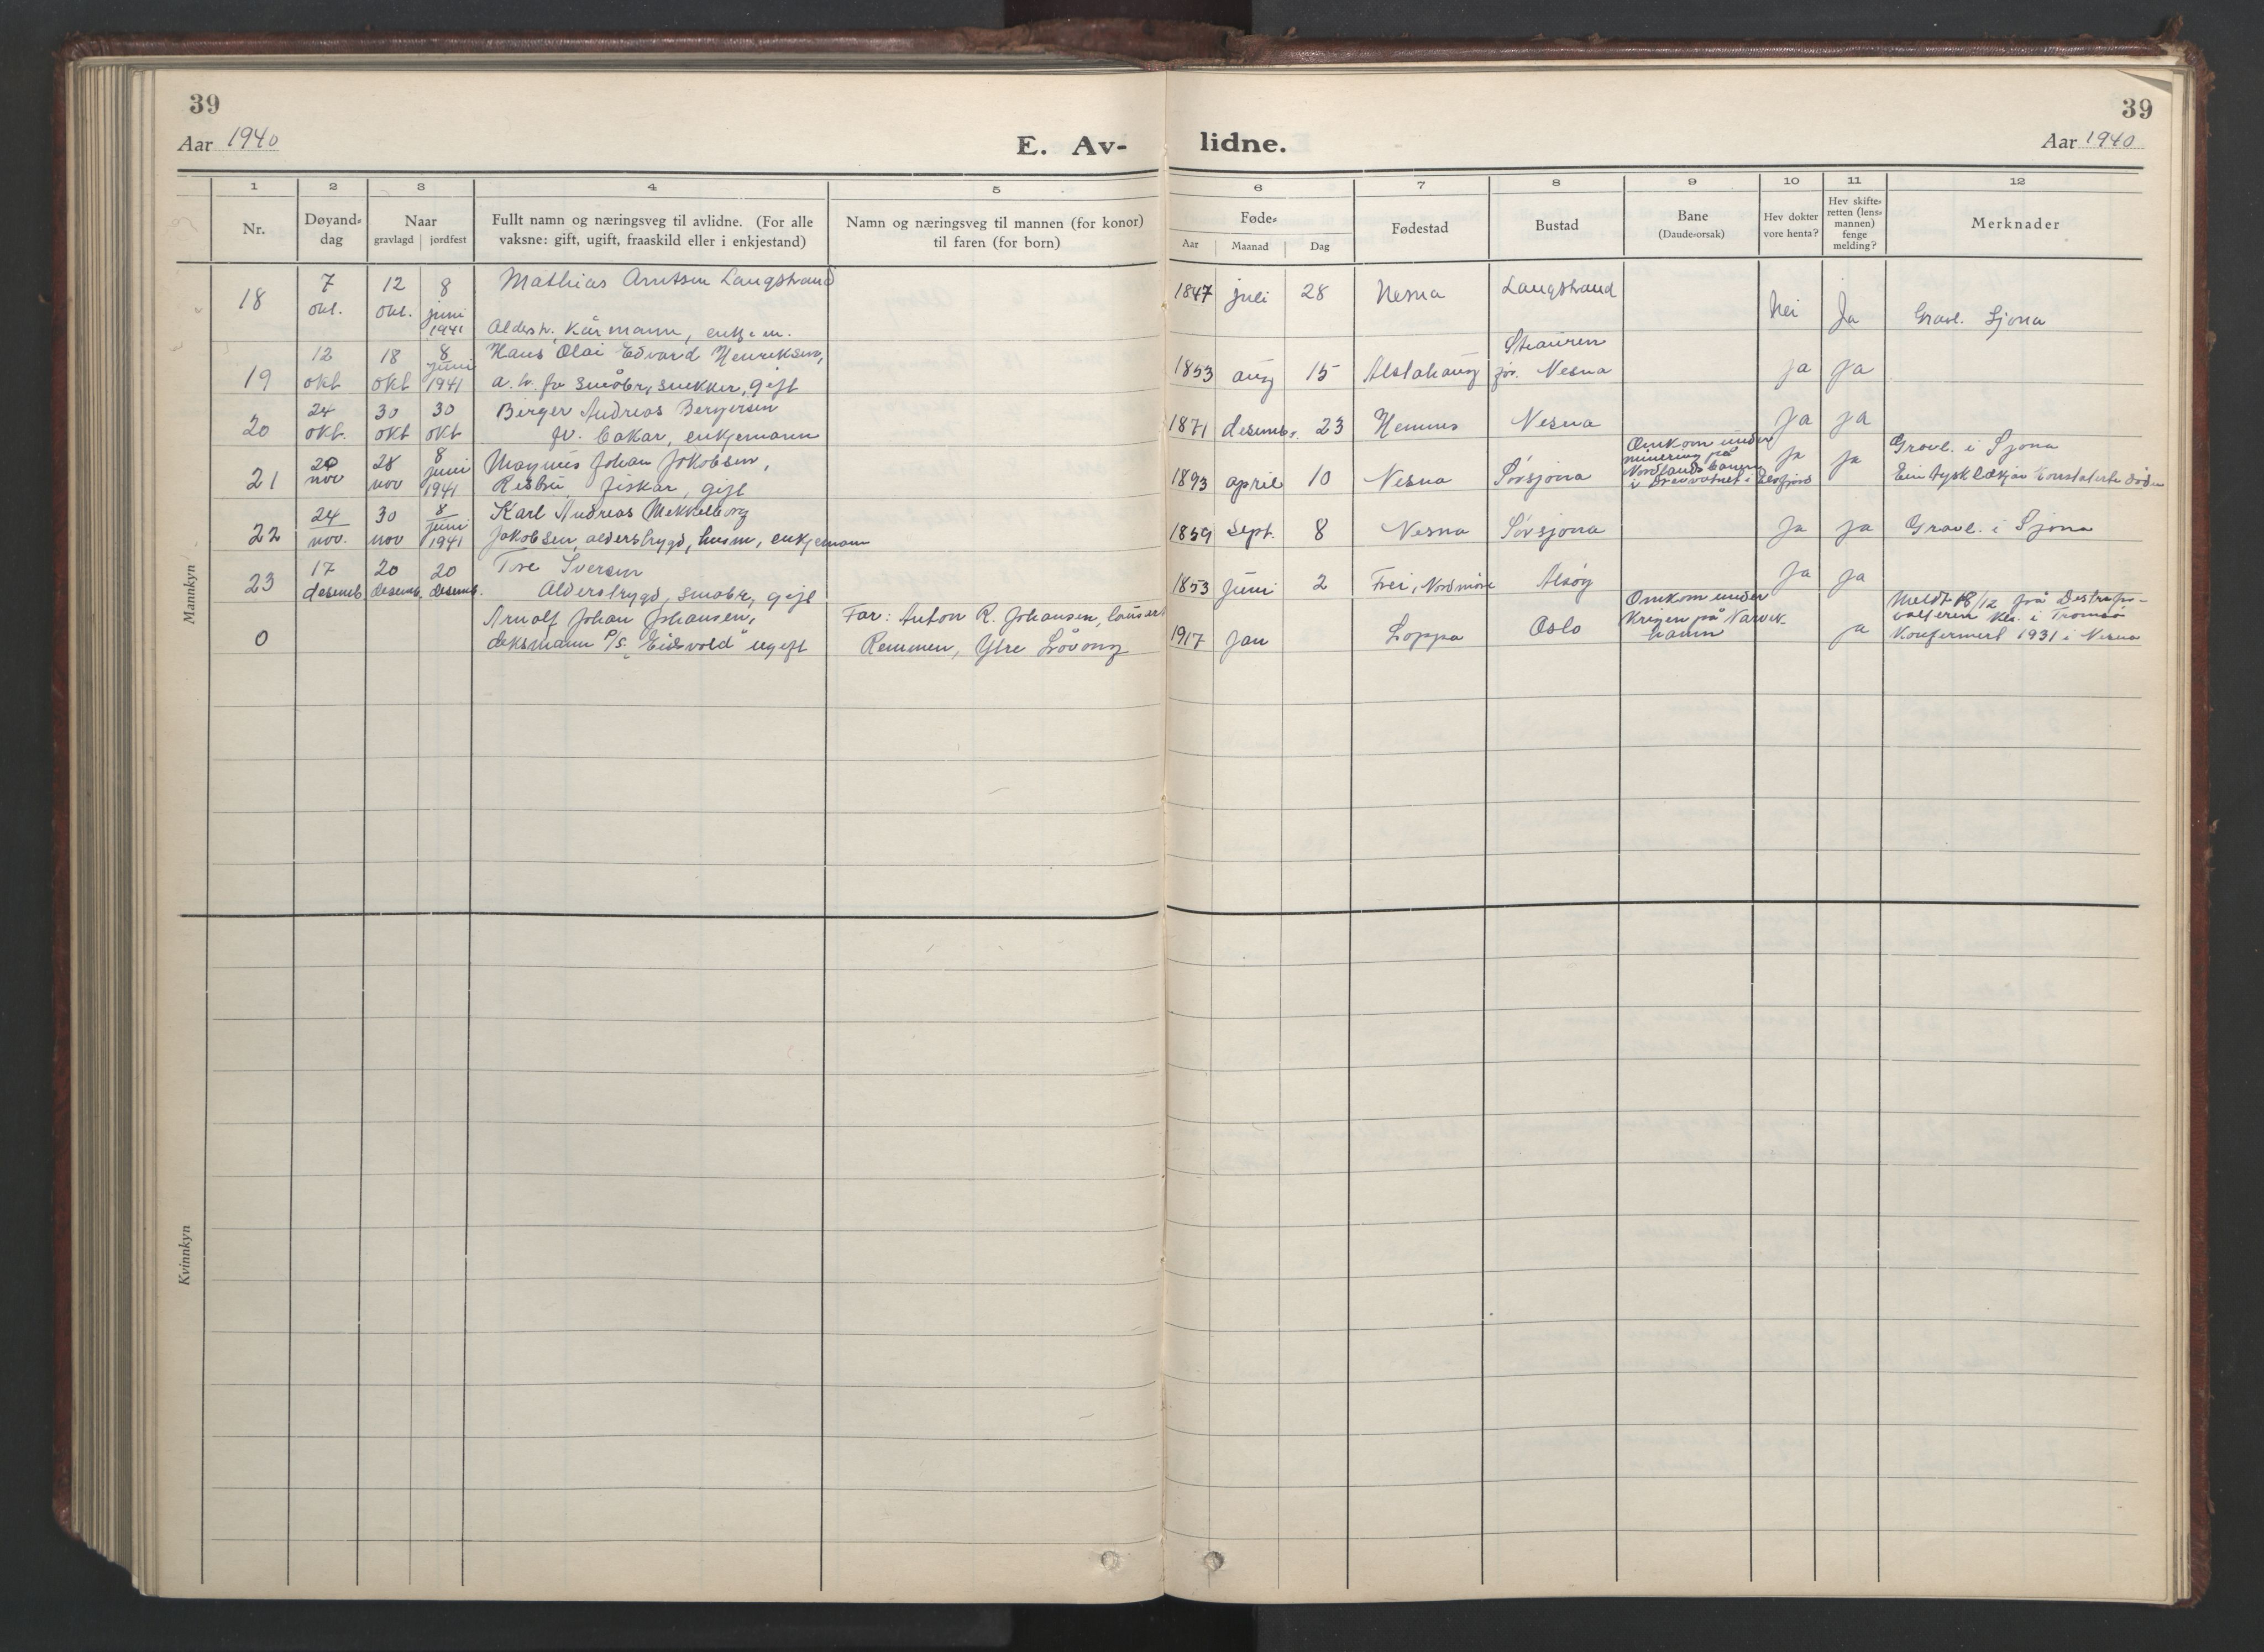 39
39
Aar 1940
E. Av-
lidne.
Aar 1940
1
2
3
4
5
6
7
8
9
10
11
12
Nr.
Døyand-
dag
Naar
gravlagd
jordfest
Fullt namn og næringsveg til avlidne. (For alle
vaksne: gift, ugift, fraaskild eller i enkjestand)
Namn og næringsveg til mannen (for konor)
til faren (for born)
Føde-
Aar
Maanad
Dag
Fødestad
Bustad
Bane
(Daude-orsak)
Hev dokter
vore henta?
Hev skifte-
retten (lens-
mannen)
fenge
melding?
Merknader
Mannkyn
18
7
okt.
12
okt.
8
juni
1941
Mathias Arntsen Langstrand
Alderstr. Kårmann, enkjem.
1847
juli
28
Nesna
Langstrand
Nei
Ja
Gravl. Sjona
19
12
okt
18
okt
8
juni
1941
Hans Olai Edvard Henriksen,
a. tr. fv småbr, snekker, gift
1853
aug
15
Alstahaug
før. Nesna
ja
ja
20
24
okt.
30
okt
30
okt
Birger Andreas Bergersen
fv. bakar, enkjemann
1871
desemb.
23
Hemnes
Nesna
ja
ja
21
20
nov
28
nov
8
juni
1941
Magnus Johan Jakobsen,
fiskar, gift
1893
april
10
Nesna
Sørsjona
Omkom under
minering på
Nordlandsbanen
i Drevvatnet i Elsfjord
ja
ja
Gravl. i Sjona
Ein tysk lækjar konstaterte døden
22
24
nov.
30
nov
8
juni
1941
Karl Andreas Mekkelborg
Jakobsen, alderstrygd, husm, enkjemann
1859
sept.
8
Nesna
Sørsjona
Ja
ja
Gravl. i Sjona
23
17
desemb
20
desemb.
20
desemb.
Tore Iversen
Alderstrygd, småbr, gift
1853
juni
2
Frei, Nordmøre
Alsøy
Ja
ja
0
Arnolf Johan Johansen,
deksmann P/s. "Eidsvold" ugift
Far: Anton R. Johansen,
Remmen, Ytre Løvong
1917
jan
Loppa
Oslo
Omkom under
Krigen på Narvik
hamn
ja
Meldt 18/12 frå Distrapo-
valteren i Tromsø
Konfermert 1931 i Nesna
Kvinnkyn